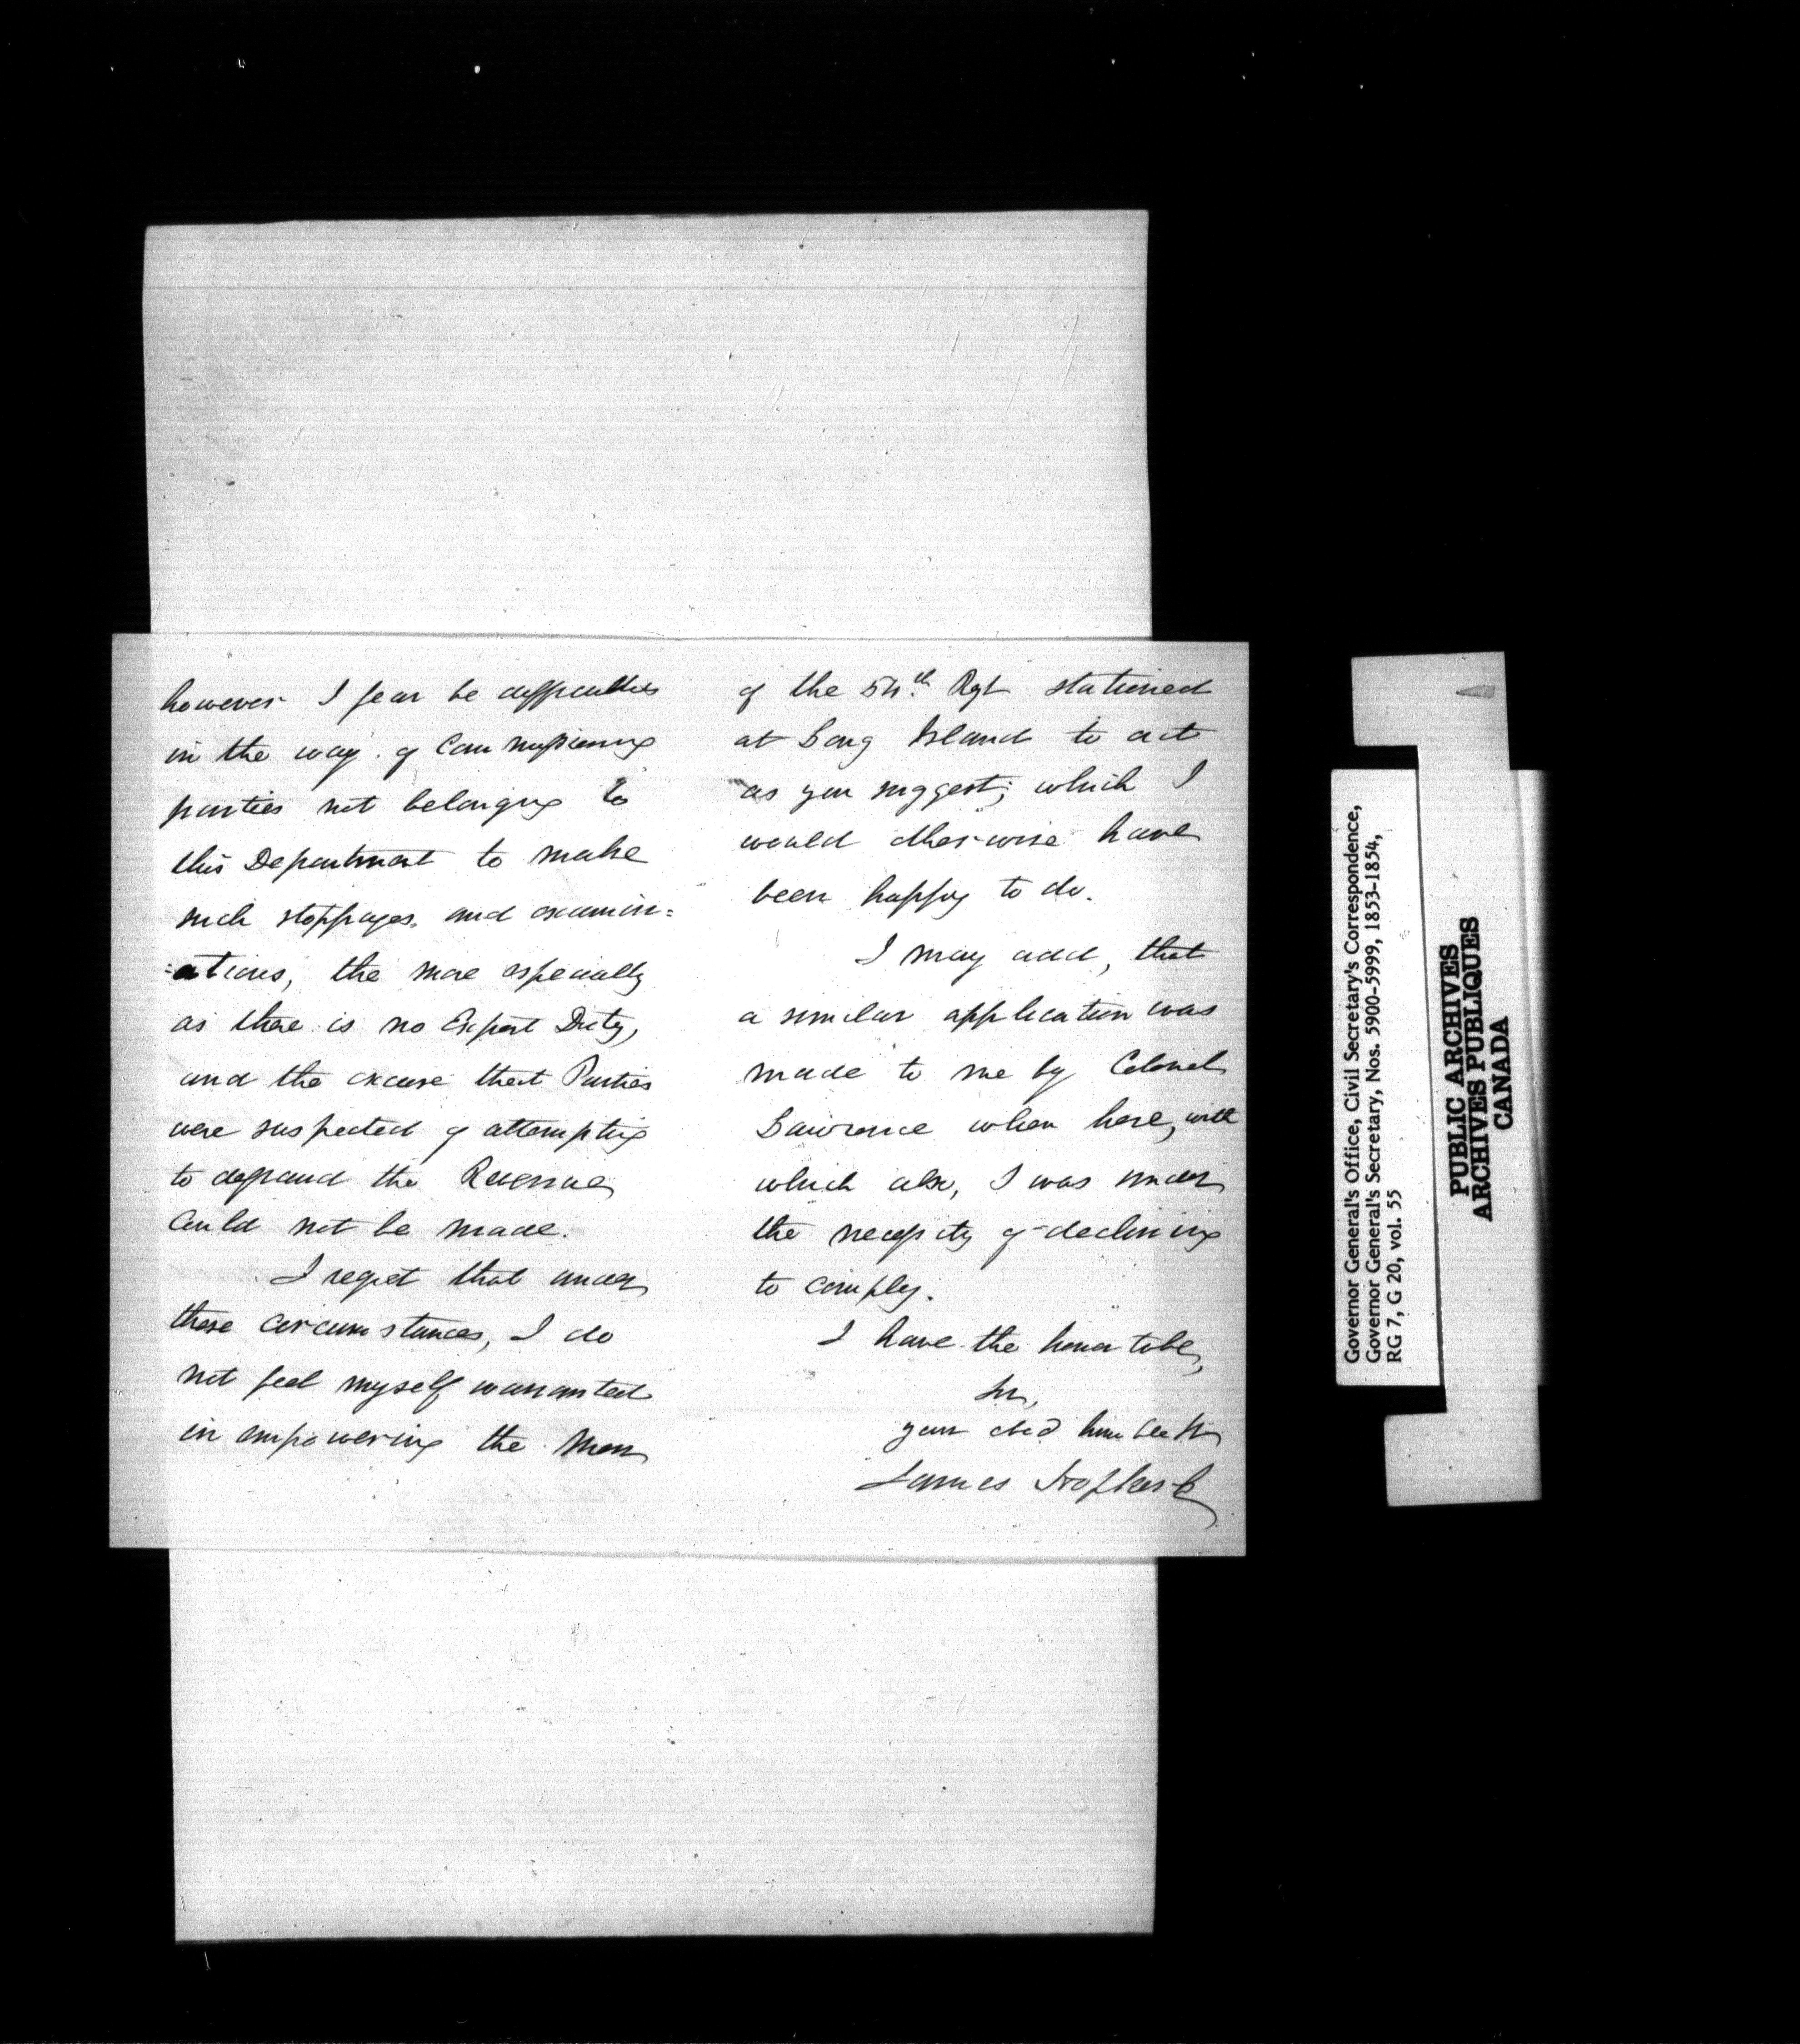 however I fear be difficulties
in the way of Commissioning
parties not belonging to
this Department to make
such stoppages, and examin=
=ations, the more especially
as there is no Export Duty,
and the excuse that Parties
were suspected of attempting
to defraud the Revenue
Could not be made.
I regret that under
these circumstances, I do
not feel myself warranted
in empowering the Men
of the 54th Rgt stationed
at Long Island to act
as you suggest; which I
would otherwise have
been happy to do.
I may add, that
a similar application was
made to me by Colonel
Lawrence when here, with
which also, I was under
the necessity of declining
to comply.
I have the honor to be,
Sir,
your obed humble
James
Governor General's Office, Civil Secretary's Correspondence,
Governor General's Secretary, Nos. 5900-5999, 1853-1854,
RG 7, G 20, vol. 55
PUBLIC ARCHIVES
ARCHIVES PUBLIQUES
CANADA